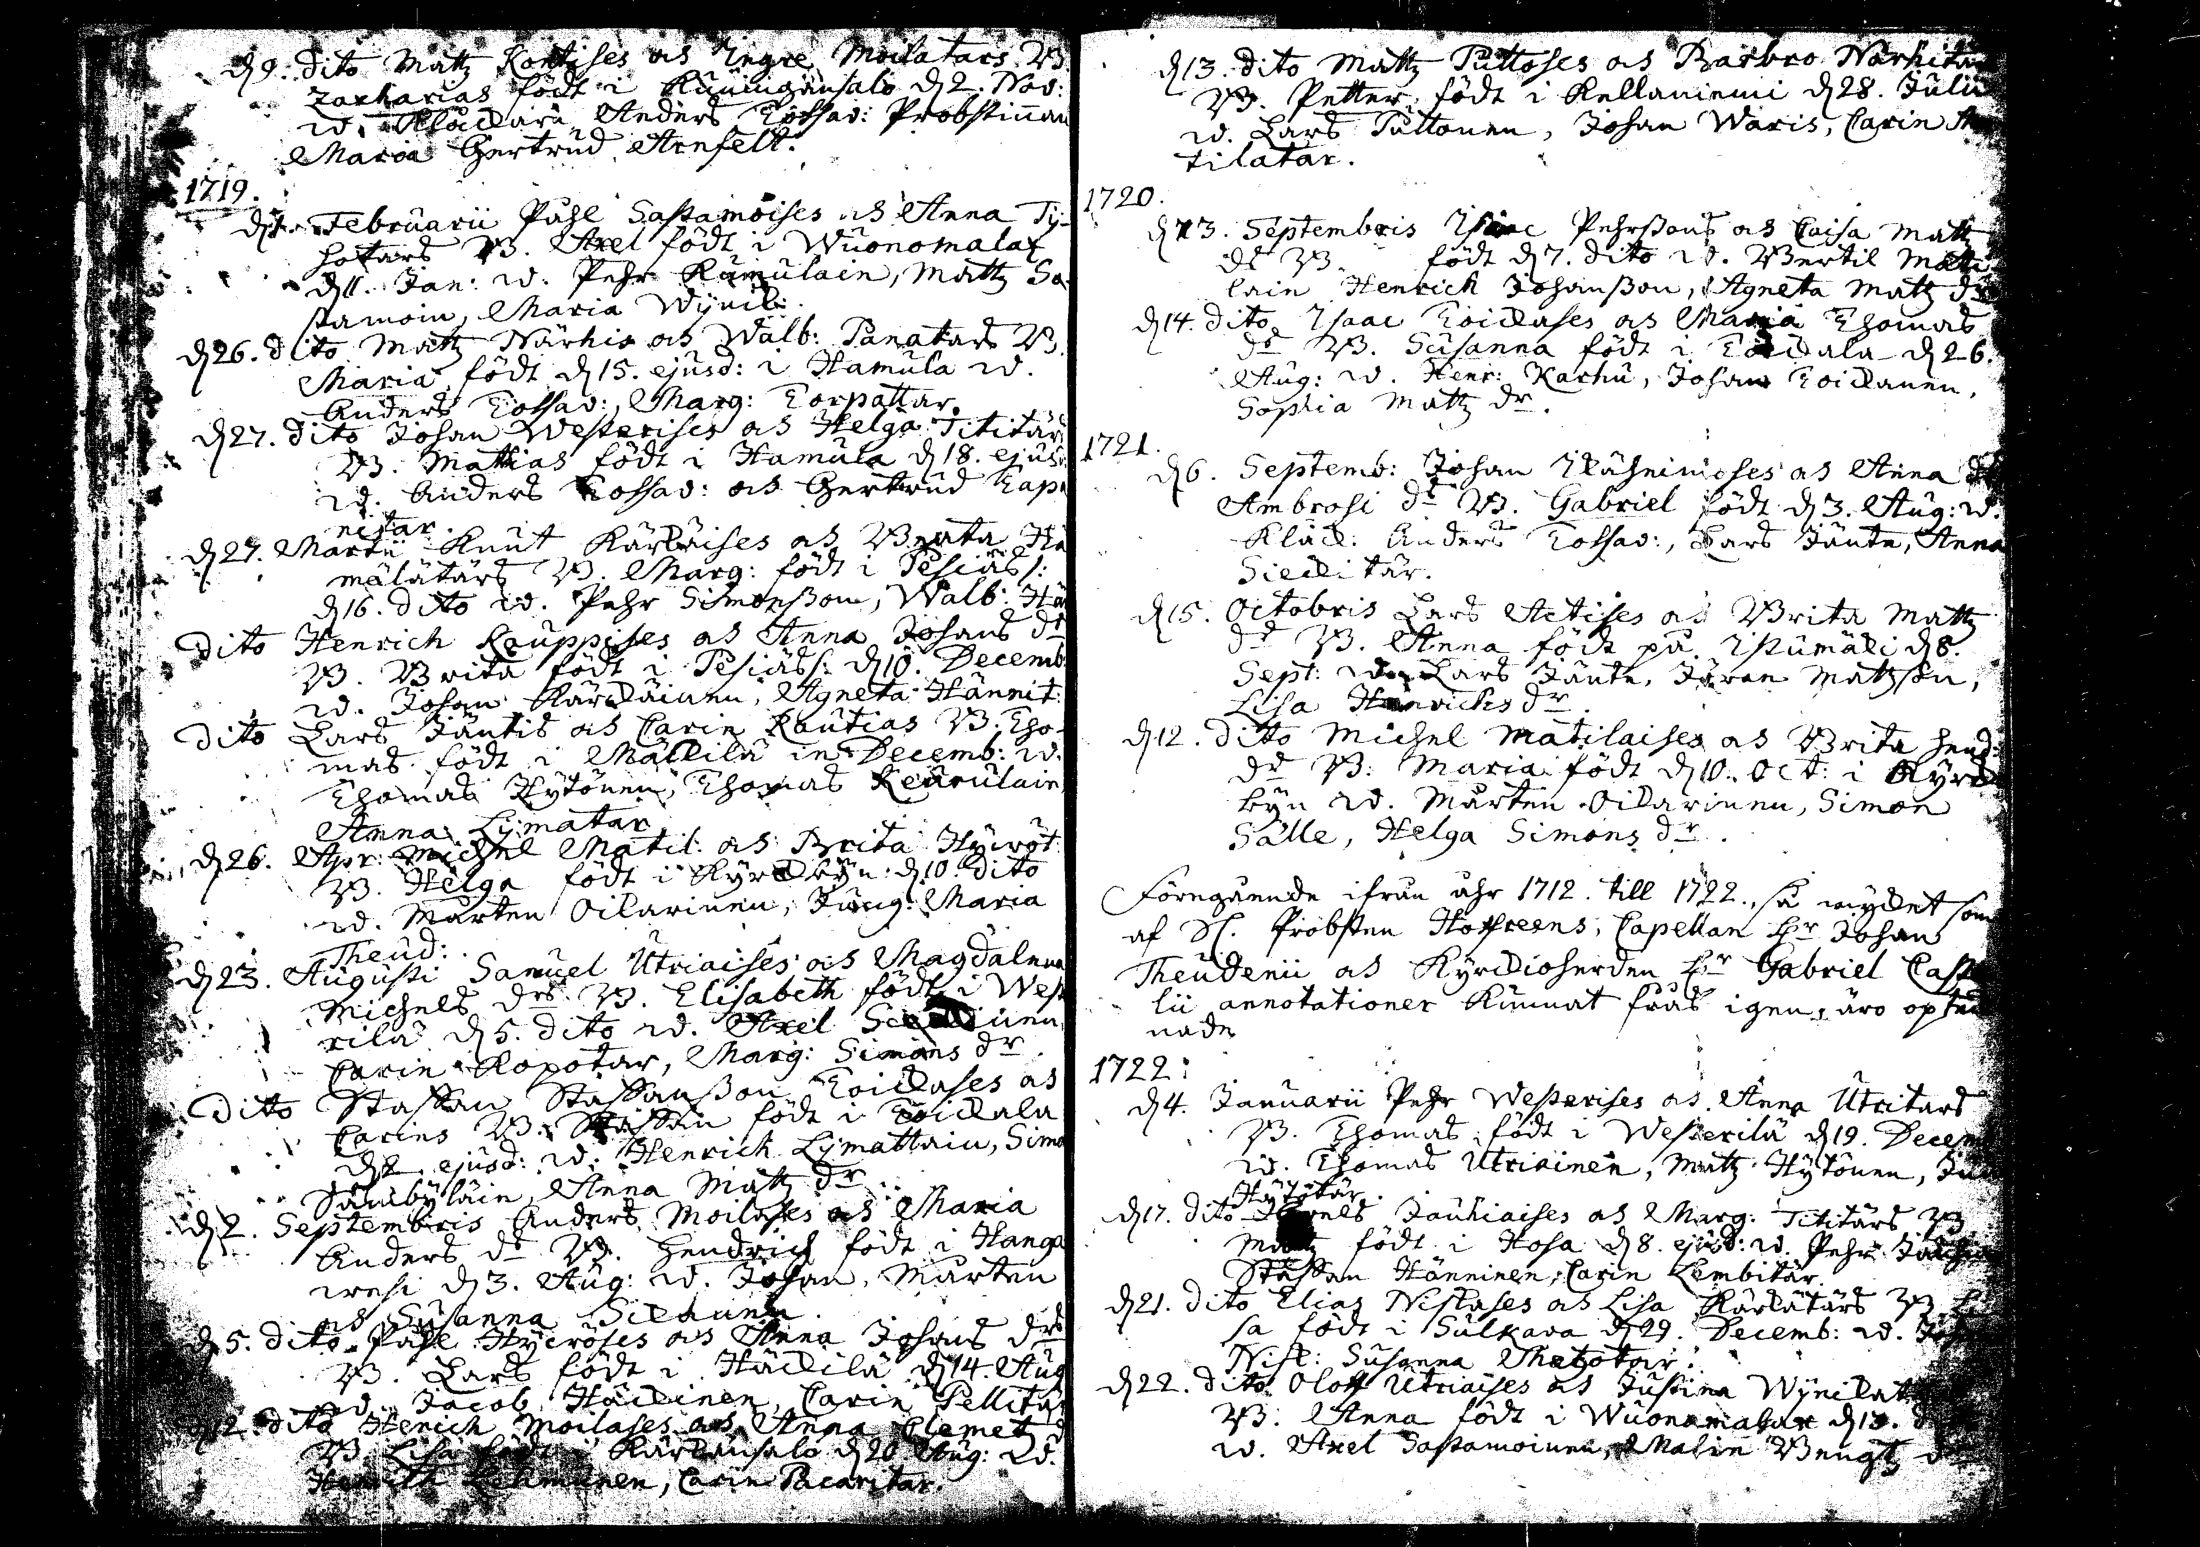 d 9. dito Matz Kontises as Ingre Moilatars B.
Zacharias födt i Kuningansalo d 2. Nov:
w. Anders Tolffar: Probstinnan
Maria Gertrud Arnfelt.
1719.
Februarii Påhl Sastamoises as Anna Ty-
hotars B. Axel födt i Wuonomalax
d 11. Jan: w. Pehr Rumulain, Matz Sa-
stamoin, Maria Wynil:
d 26. dito Matz Närhis as Walb: Panatars B.
Maria födt d 15. ejusd: i Hamula w.
Anders Tolffar:, Marg: Torpattar.
d 27. dito Johan Westerises as Helga Tititärs
B. Mathias födt i Hamula d 18. ejusd:
w. Anders Tolffar: as Gertrud
nitar.
d 27. Martii Knut Kärkäises as Beata
mälätärs B. Marg: födt i Pesiäs/:
d 16. dito w. Pehr Simonßon, Walb:
Dito Henrich Kauppises as Anna Johans dr
B. Brita födt i Pesiäs/: d 10. Decemb:
w. Johan Kärkäinen, Agneta Hännit:
Dito Lars Jäntis as Carin Rautias B. Tho-
mas födt i Mäkilä in Decemb: w.
Thomas Hytönen, Thomas Keurulain,
Anna Lymatar
d 26. Apr: Michel Matil: as Brita Hywöt:
B. Helga födt i Kyrckbyn d 10. dito
w. Mårten Oikarinen, Jung: Maria
Theud:
d 23. Augusti Samuel Utriaises as Magdalena
Michels drs B. Elisabeth födt i West
rilä d 5. dito w. Axel
Carin Ropotar, Marg: Simons dr.
Dito Staffan Staffanßon Toikases as
Carins B. Staffan födt i Toikala
ejusd: w. Henrich Lymattain, Simo
Anna Matz dr
d 2. Septembris Anders Moilases as Maria
Anders dr B. Hendrich födt i Hanga
wesi d 3. Aug: w. Johan, Mårten
as Susanna
d 5. dito Påhl Hyvröses as Anna Johans drs
B. Lars födt i Häkkilä d 14. Aug
w. Jacob Häkkinen, Carin Pellitär
d 12. dito Henich Moilases as Anna Clemetz
B. Lisa födt i Kärkänsalo d 20 Aug: w.
Carin Pacaritar.
d 13. dito Matz Puttoses as Barbro Närhitar
B. Petter födt i Kellaniemi d 28. Julii
w. Lars Puttonen, Johan Waris, Carin
tilatar.
1720.
d 13. Septembris Isaac Pehrßons as Caisa Matz
dr B. födt d 7. dito w. Bertil Mati
lain Henrich Johanßon, Agneta Matz dr
d 14. dito Isaac Toikases as Maria Thomas
dr B. Susanna födt i Toikala d 26.
Aug: w. Henr: Karhu, Johan Toikanen,
Sophia Matz dr.
1721.
d 6. Septemb: Johan as Anna
Ambrosi dr B. Gabriel födt d 3. Aug: w.
Kläck: Anders Tolffar:, Lars Jänte, Anna
Siekitär.
d 15. Octobris Lars Actises as Brita Matz
dr B. Anna födt på Istumäki d 8.
Sept: w. Lars Jänte, Jöran Matzson,
Lisa Henrichs dr.
d 12. dito Michel Matilaises as Brita Hend:
dr B: Maria födt d 10. Oct: i Kyrck
byn w. Mårten Oikarinen, Simon
Sälle, Helga Simons dr.
Förngående ifrån åhr 1712. till 1722., så mycket som
af Sl. Probsten Hoffreens, Capellan Hr Johan
Theudenii as Kyrckioherden Hr Gabriel Cast
lii annotationer kunnat fåås igen, äro opteck
nade
1722:
d 4. Januarii Pehr Westerises as Anna Utritars
B. Thomas födt i Westerilä d 19. Decem
w. Thomas Utriainen, Matz Hytönen,
Hytytär.
d 17. dito Jauhiaises as Marg: Tititärs B
födt i Hosa d 8. ejusd: w. Pehr
Staffan Hänninen, Carin Lembitär.
d 21. dito Elias Niskases as Lisa Kärkätärs B.
sa födt i Sulkava d 29. Decemb: w.
Nisk: Susanna
d 22. dito Oloff Utriaises as Justina
B. Anna födt i Wuonamalax
w. Axel Sastamoinen, Malin Bengtz